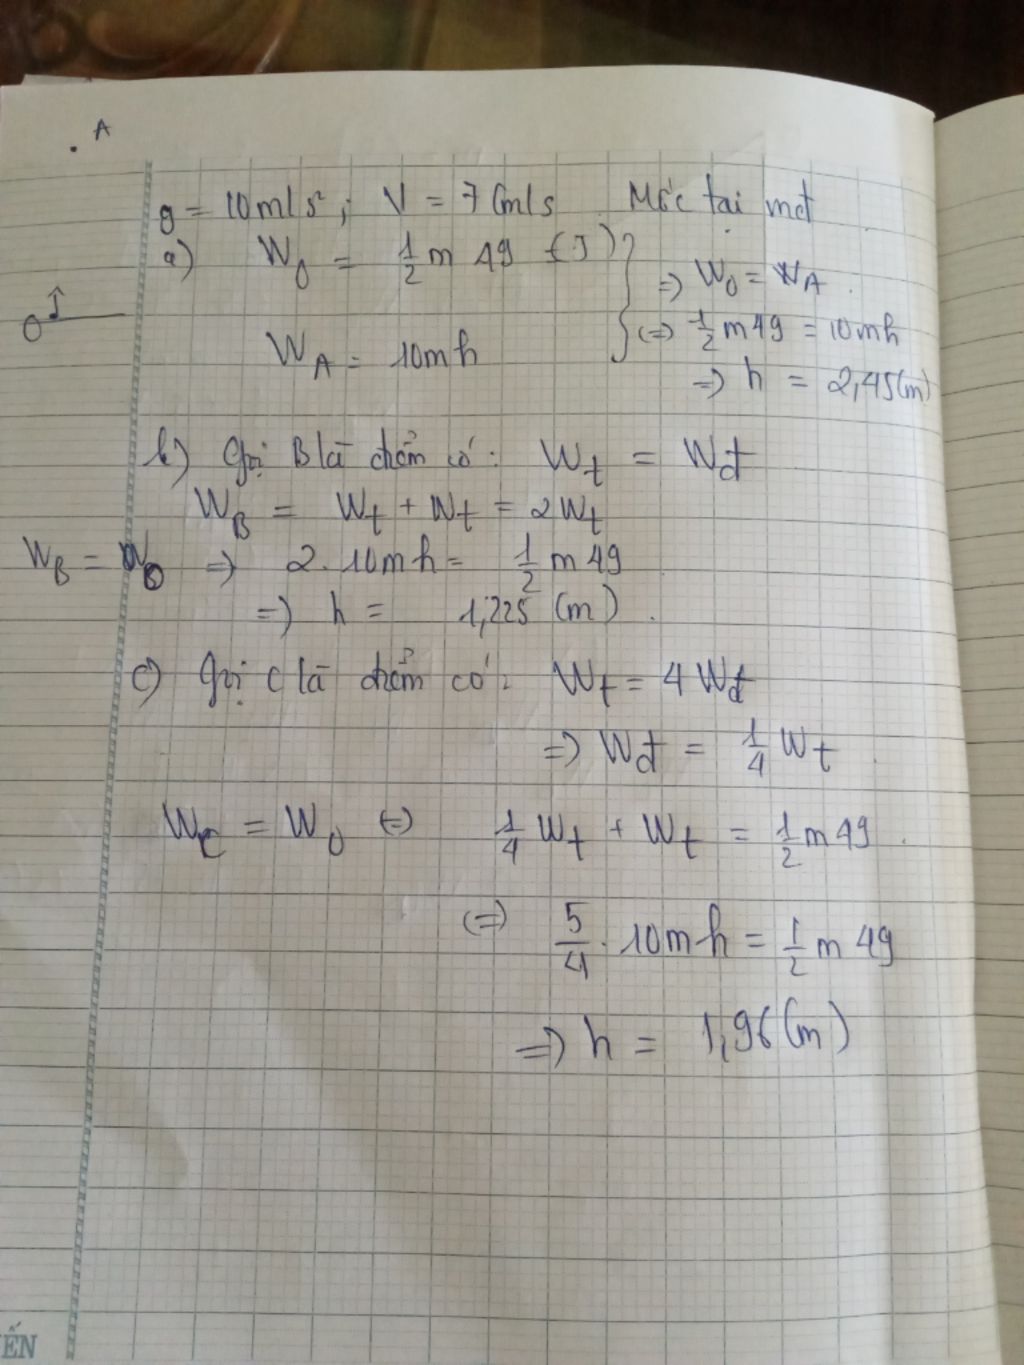 A
g = 10m/s²; V = 7(m/s) Mốc tại mđ
a) W₀ = 1/2 m 49 (J)
⇒ W₀ = W_A
O
W_A = 10mh
(⇒ 1/2 m 49 = 10mh
⇒ h = 2,45(m)
b) Gọi B là điểm có: Wt = Wđ
W_B = Wt + Wt = 2Wt
W_B = W₀ ⇒ 2.10mh = 1/2 m 49
⇒ h = 1,225 (m).
c) Gọi C là điểm có: Wt = 4Wđ
⇒ Wđ = 1/4 Wt
W_C = W₀ ⇔ 1/4 Wt + Wt = 1/2 m 49
(⇒ 5/4 . 10mh = 1/2 m 49
⇒ h = 1,96(m)
ẾN